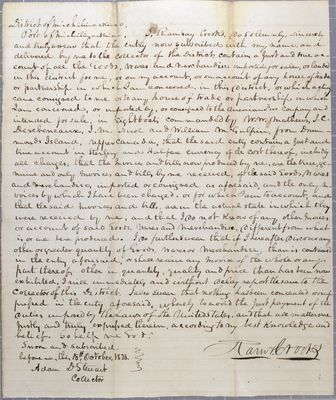 District of Michilimackinac,
Port of Michilimackinac. I, Ramsay Crooks, Do solemnly, sincerely
and truly swear that the entry now subscribed with my name, and
delivered by me to the Collector of the District, contains a just and true ac-
count of all the Goods, Wares and Merchandise imported for sale, or landed
in this district for me, or on my account, or on account of any house of trade
or partnership in which I am concerned, in this District, or which
came consigned to me or to any house of trade or partnership, in which
I am concerned, or imported by, or consigned to the American Company and
intended for sale, in Eight boats commanded by W. W. Matthews, J. C.
and William McGulpin, from Drum-
mond's Island, Upper Canada, that the said entry contains a just and
true account in and Halifax currency of the cost thereof, including
all charges, that the Invoice and bills now produced by me, are the true, ge-
nuine and only Invoices, and bills by me received, of the said Goods, Wares
and Merchandise, imported or consigned as aforesaid, and the only In-
voices by which I have been charged, or for which I am to account, and
that the said Invoices and bills, are in the actual state in which they
were received by me, and that I Do not know of any other Invoice
or account of said Goods, Wares and Merchandise, different from what
is or are here produced. I Do further swear that if I hereafter discover any
other or greater quantity of Goods, Wares or Merchandise, than is contained
in the entry aforesaid, or shall receive any Invoice of the whole or any
part thereof other in quantity, quality and price than has been now
exhibited, I will immediately and without delay report the same to the
Collector of this District. I also swear that nothing has been concealed or sup-
pressed in the entry aforesaid, whereby to avoid the just payment of the
duties imposed by the Laws of the United States, and that all matters are
justly and truly expressed therein, according to my best knowledge and
belief. So help me God.
Sworn and subscribed
before me, this 13th October, 1818.
Ramsay Crooks
Adam D. Stewart
Collector